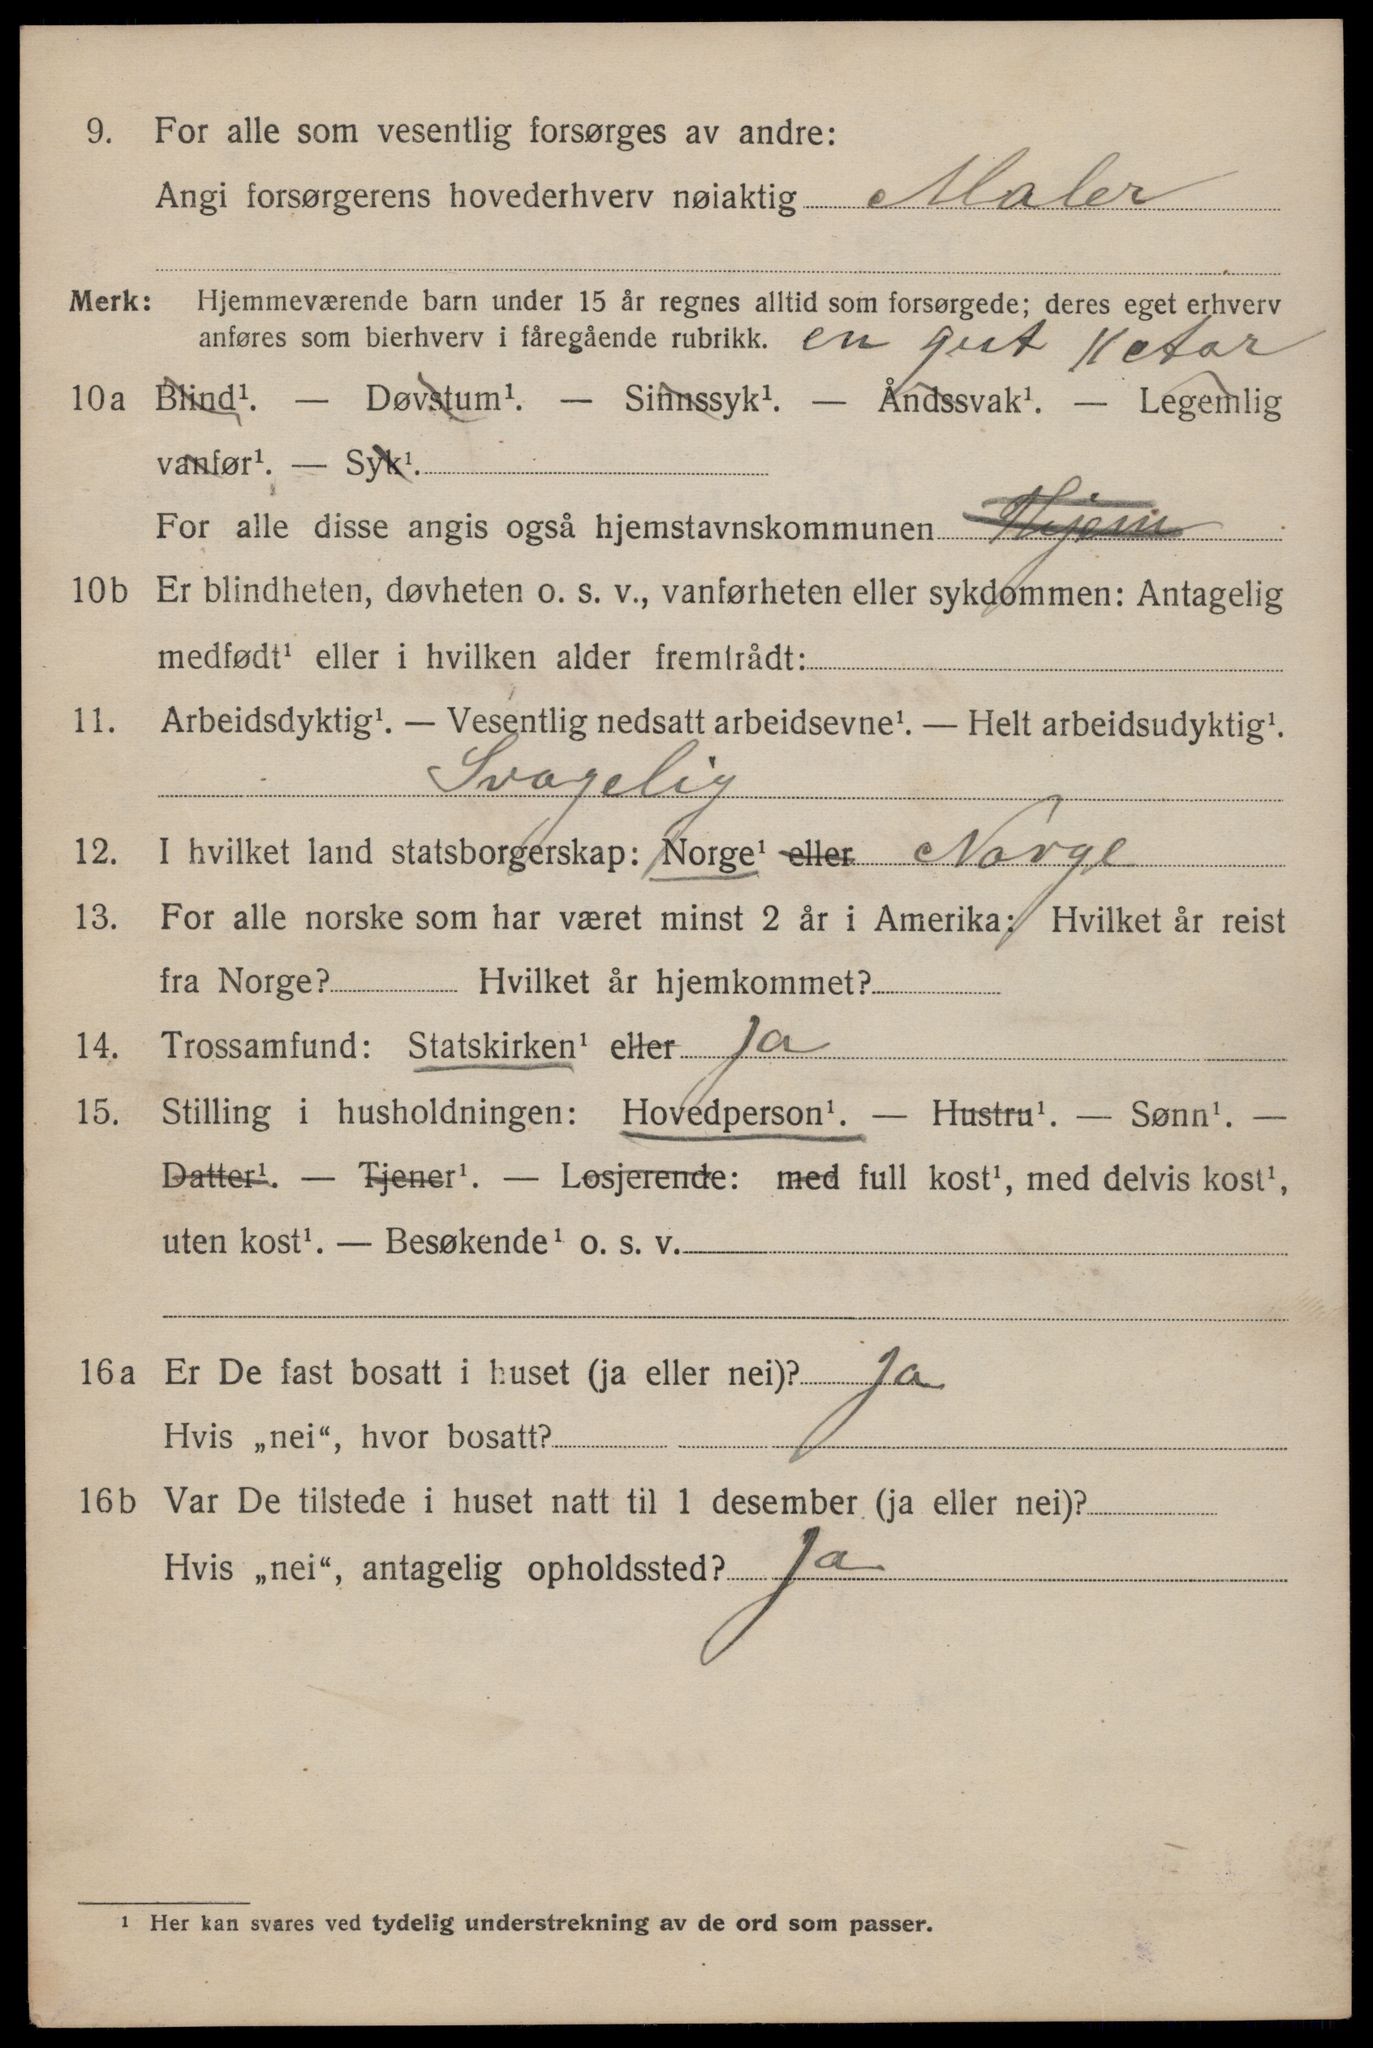 9. For alle som vesentlig forsørges av andre:
Angi forsørgerens hovederhverv nøiaktig Maler
Merk: Hjemmeværende barn under 15 år regnes alltid som forsørgede; deres eget erhverv
anføres som bierhverv i fåregående rubrikk. en gut
10a Blind¹. — Døvstum¹. — Sinnssyk¹. — Åndssvak¹. — Legemlig
vanfør¹. — Syk¹.
For alle disse angis også hjemstavnskommunen
10b Er blindheten, døvheten o. s. v., vanførheten eller sykdommen: Antagelig
medfødt¹ eller i hvilken alder fremtrådt:
11. Arbeidsdyktig¹. — Vesentlig nedsatt arbeidsevne¹. — Helt arbeidsudyktig¹.
Svagelig
12. I hvilket land statsborgerskap: Norge¹ eller Norge
13. For alle norske som har været minst 2 år i Amerika: Hvilket år reist
fra Norge? Hvilket år hjemkommet?
14. Trossamfund: Statskirken¹ eller Ja
15. Stilling i husholdningen: Hovedperson¹. — Hustru¹. — Sønn¹. —
Datter¹. — Tjener¹. — Losjerende: med full kost¹, med delvis kost¹,
uten kost¹. — Besøkende¹ o. s. v.
16a Er De fast bosatt i huset (ja eller nei)? Ja
Hvis „nei“, hvor bosatt?
16b Var De tilstede i huset natt til 1 desember (ja eller nei)?
Hvis „nei“, antagelig opholdssted? Ja
¹ Her kan svares ved tydelig understrekning av de ord som passer.